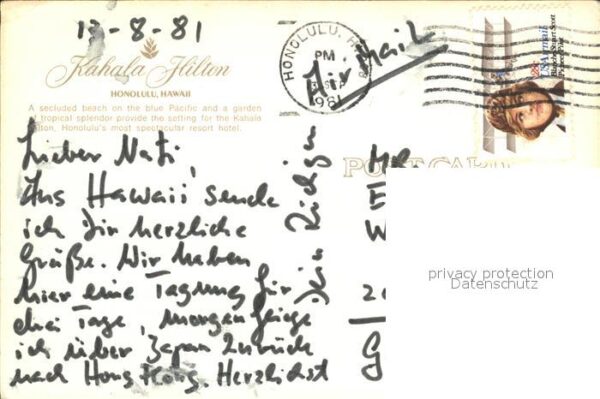 13-8-81
Kahala Hilton
HONOLULU, HAWAII
A secluded beach on the blue Pacific and a garden
of tropical splendor provide the setting for the Kahala
Hilton, Honolulu's most spectacular resort hotel.
Lieber Nati,
Aus Hawaii sende
ich Dir herzliche
Grüße. Wir haben
hier eine Tagung für
drei Tage, morgen fliege
ich über Japan zurück
nach Hong Kong. Herzlichst
Dein Rüdiger
HONOLULU, H
PM
1981
Air Mail
USAirmail
28c
Blanche Stuart Scott
Pioneer Pilot
POST CARD
privacy protection
Datenschutz